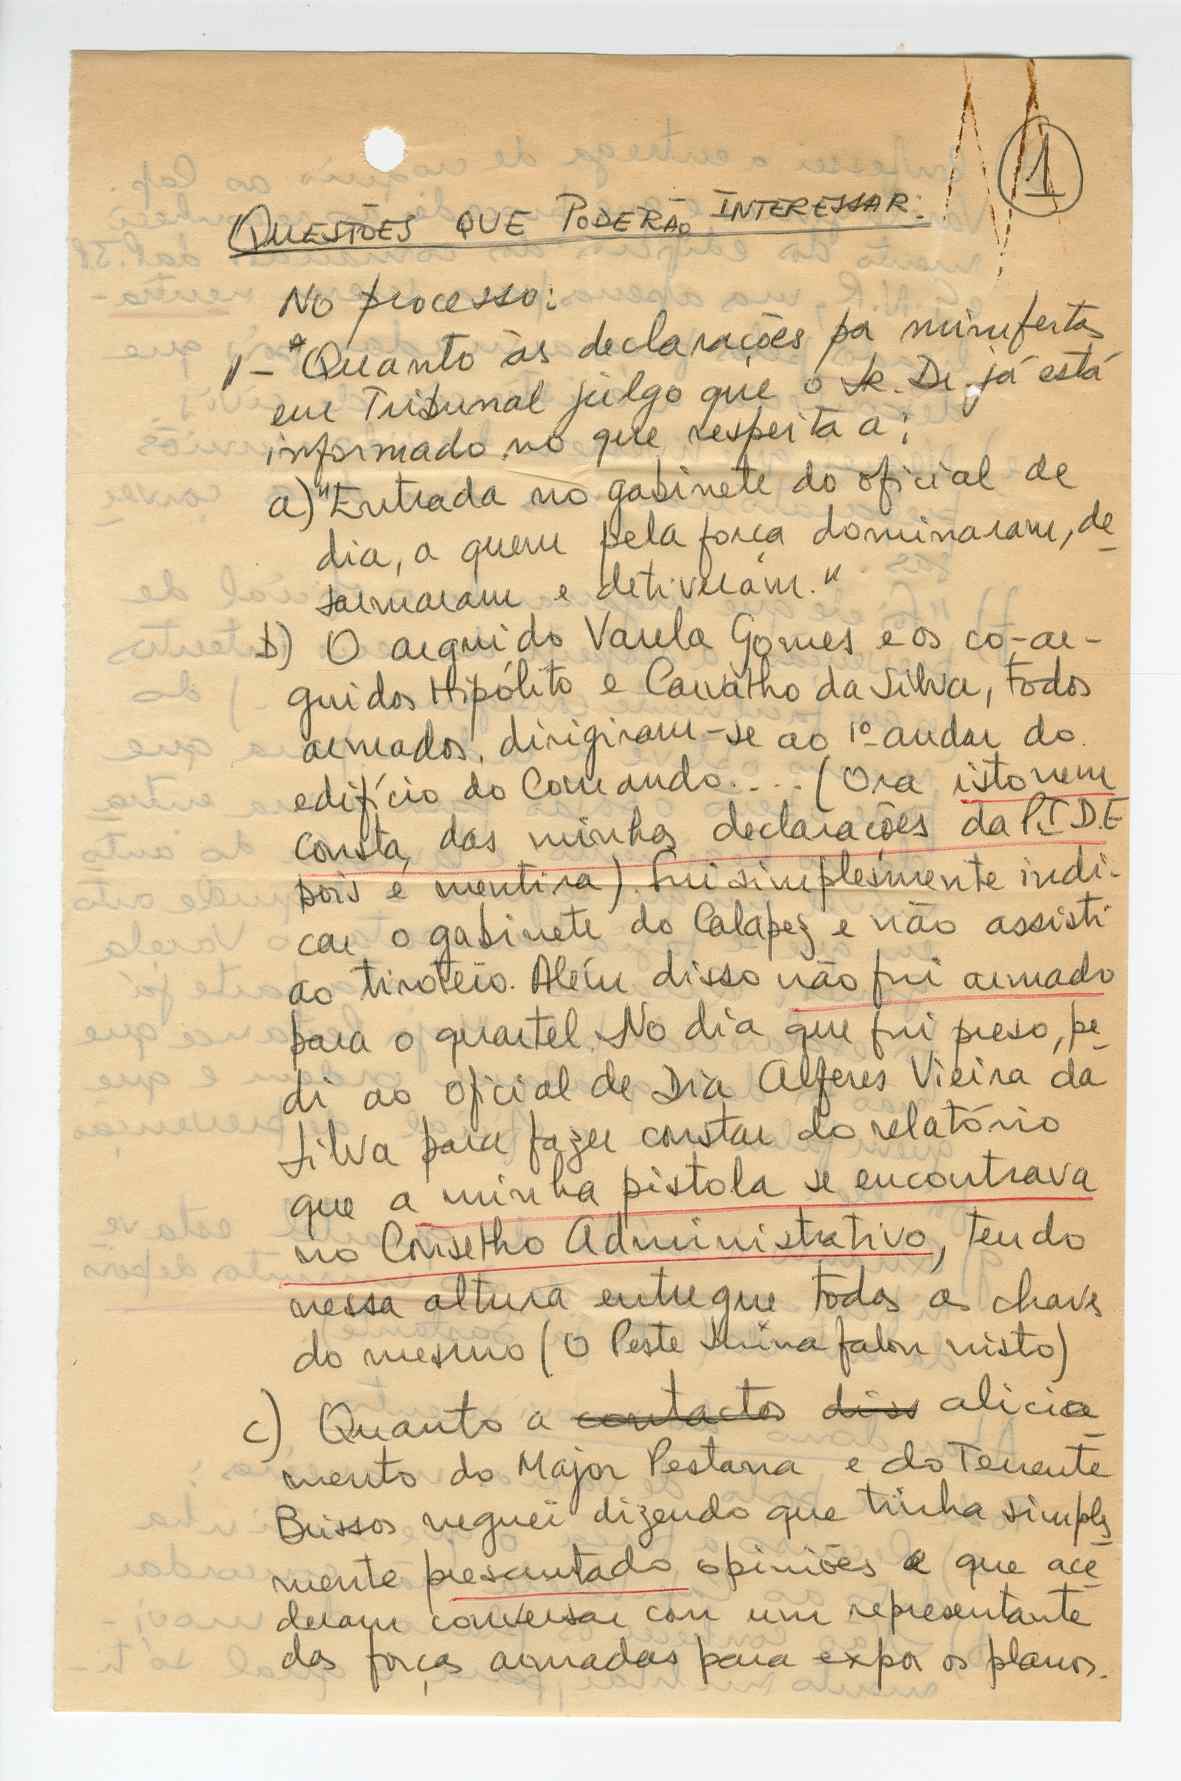 1
QUESTÕES QUE PODERÃO INTERESSAR:
No processo:
1- "Quanto às declarações por mim feitas
em Tribunal julgo que o Sr. Dr. já está
informado no que respeita a:
a) "Entrada no gabinete do oficial de
dia, a quem pela força dominaram, de-
sarmaram e detiveram."
b) O arguido Varela Gomes e os co-ar-
guidos Hipólito e Carvalho da Silva, todos
armados, dirigiram-se ao 1º andar do
edifício do Comando.... (Ora isto nem
consta das minhas declarações da P.I.D.E
pois é mentira). Fui simplesmente indi-
car o gabinete do Calapez e não assisti
ao tiroteio. Além disso não fui armado
para o quartel. No dia que fui preso, pe-
di ao oficial de Dia Alferes Vieira da
Silva para fazer constar do relatório
que a minha pistola se encontrava
no Conselho Administrativo, tendo
nessa altura entregue todas as chaves
do mesmo (O Peste falou nisto)
c) Quanto a contactos diss alicia-
mento do Major Pestana e do Tenente
Brissos neguei dizendo que tinha simples-
mente prescrutado opiniões e que ace-
deram conversar com um representante
das forças armadas para expor os planos.